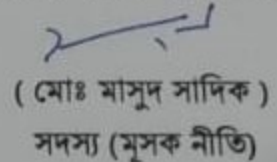 ( মোঃ মাসুদ সাদিক )
সদস্য (মূসক নীতি)